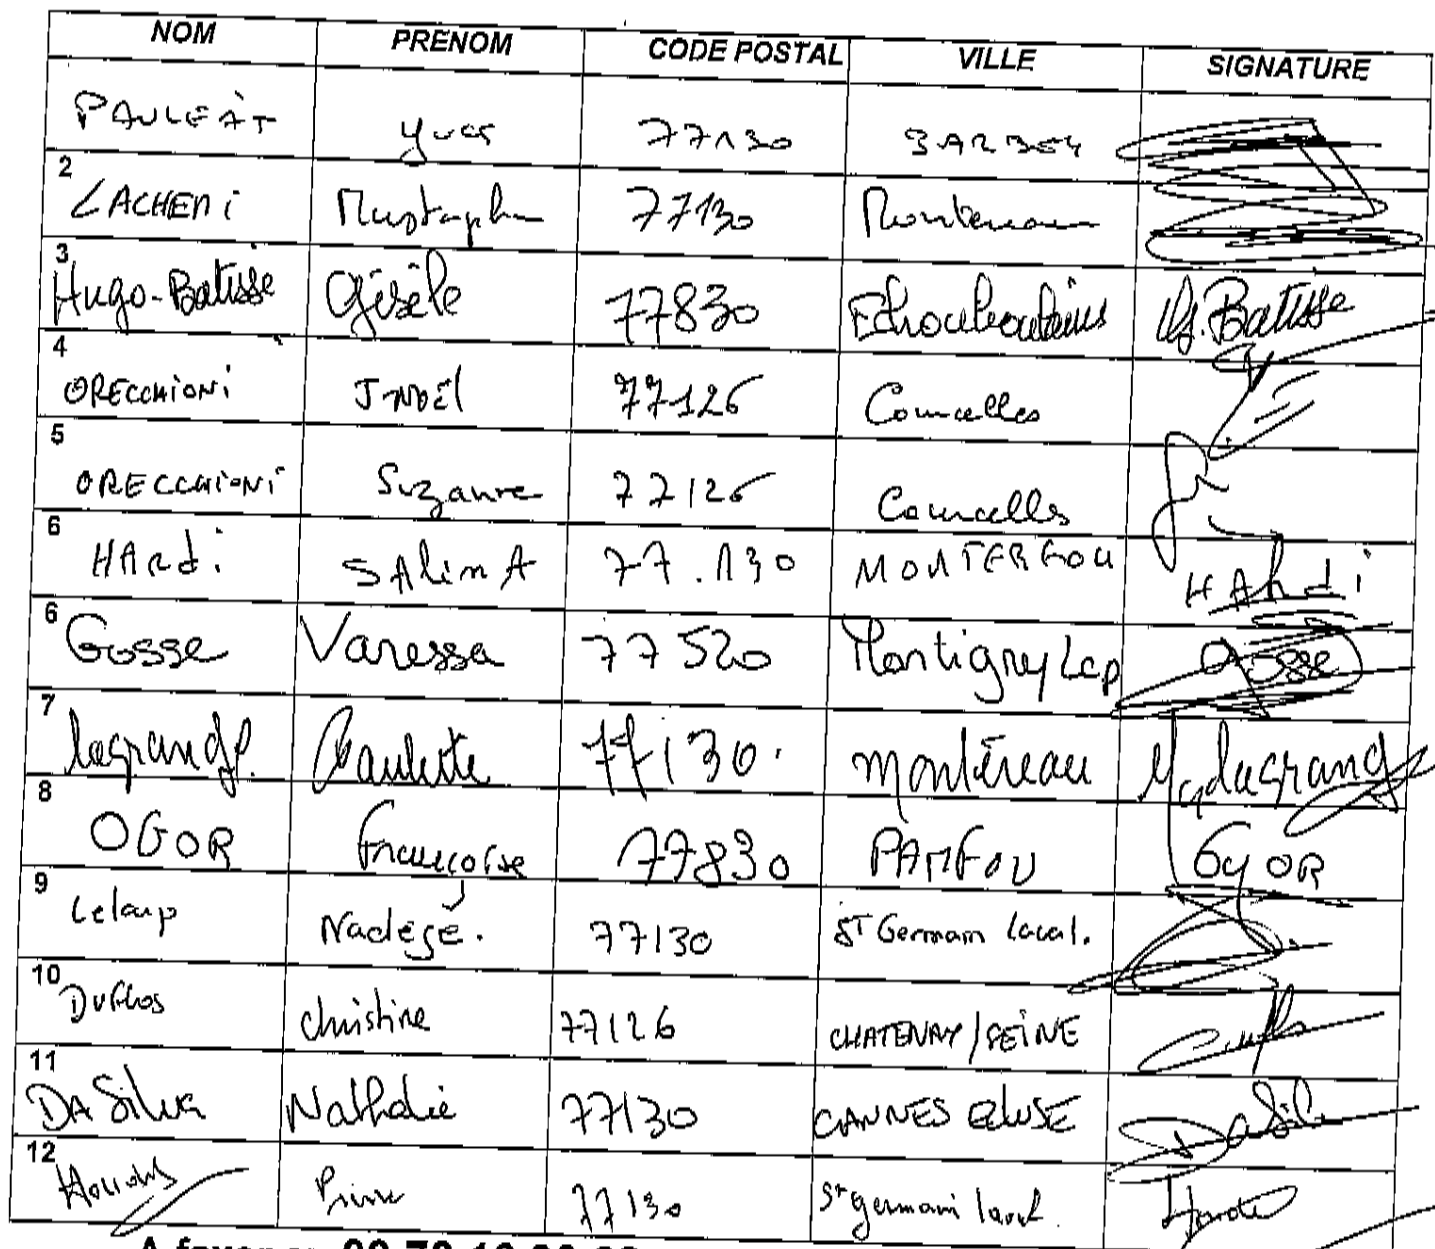 NOM PRENOM CODE POSTAL VILLE SIGNATURE
PAULEAT Yves 77130 BARBEY
2 LACHEMi Mustapha 77130 Montereau
3 Hugo-Batisse Gisèle 77830 Echouboulains G. Batisse
4 ORECCHIONI J Noël 77126 Courcelles
5 ORECCHIONI Suzanne 77126 Courcelles
6 HARdi SAlimA 77.130 MONTEREAU HARdi
6 Gosse Vanessa 77520 Montigny Lcp Gosse
7 Lagrange Paulette 77130. Montereau Lagrange
8 OGOR Françoise 77830 PAMFOU OGOR
9 Leloup Nadège. 77130 ST Germain Laval.
10 Duflos Christine 77126 CHATENAY/SEINE
11 DA Silva Nathalie 77130 CANNES ECLUSE DaSilva
12 77130 St Germain Laval